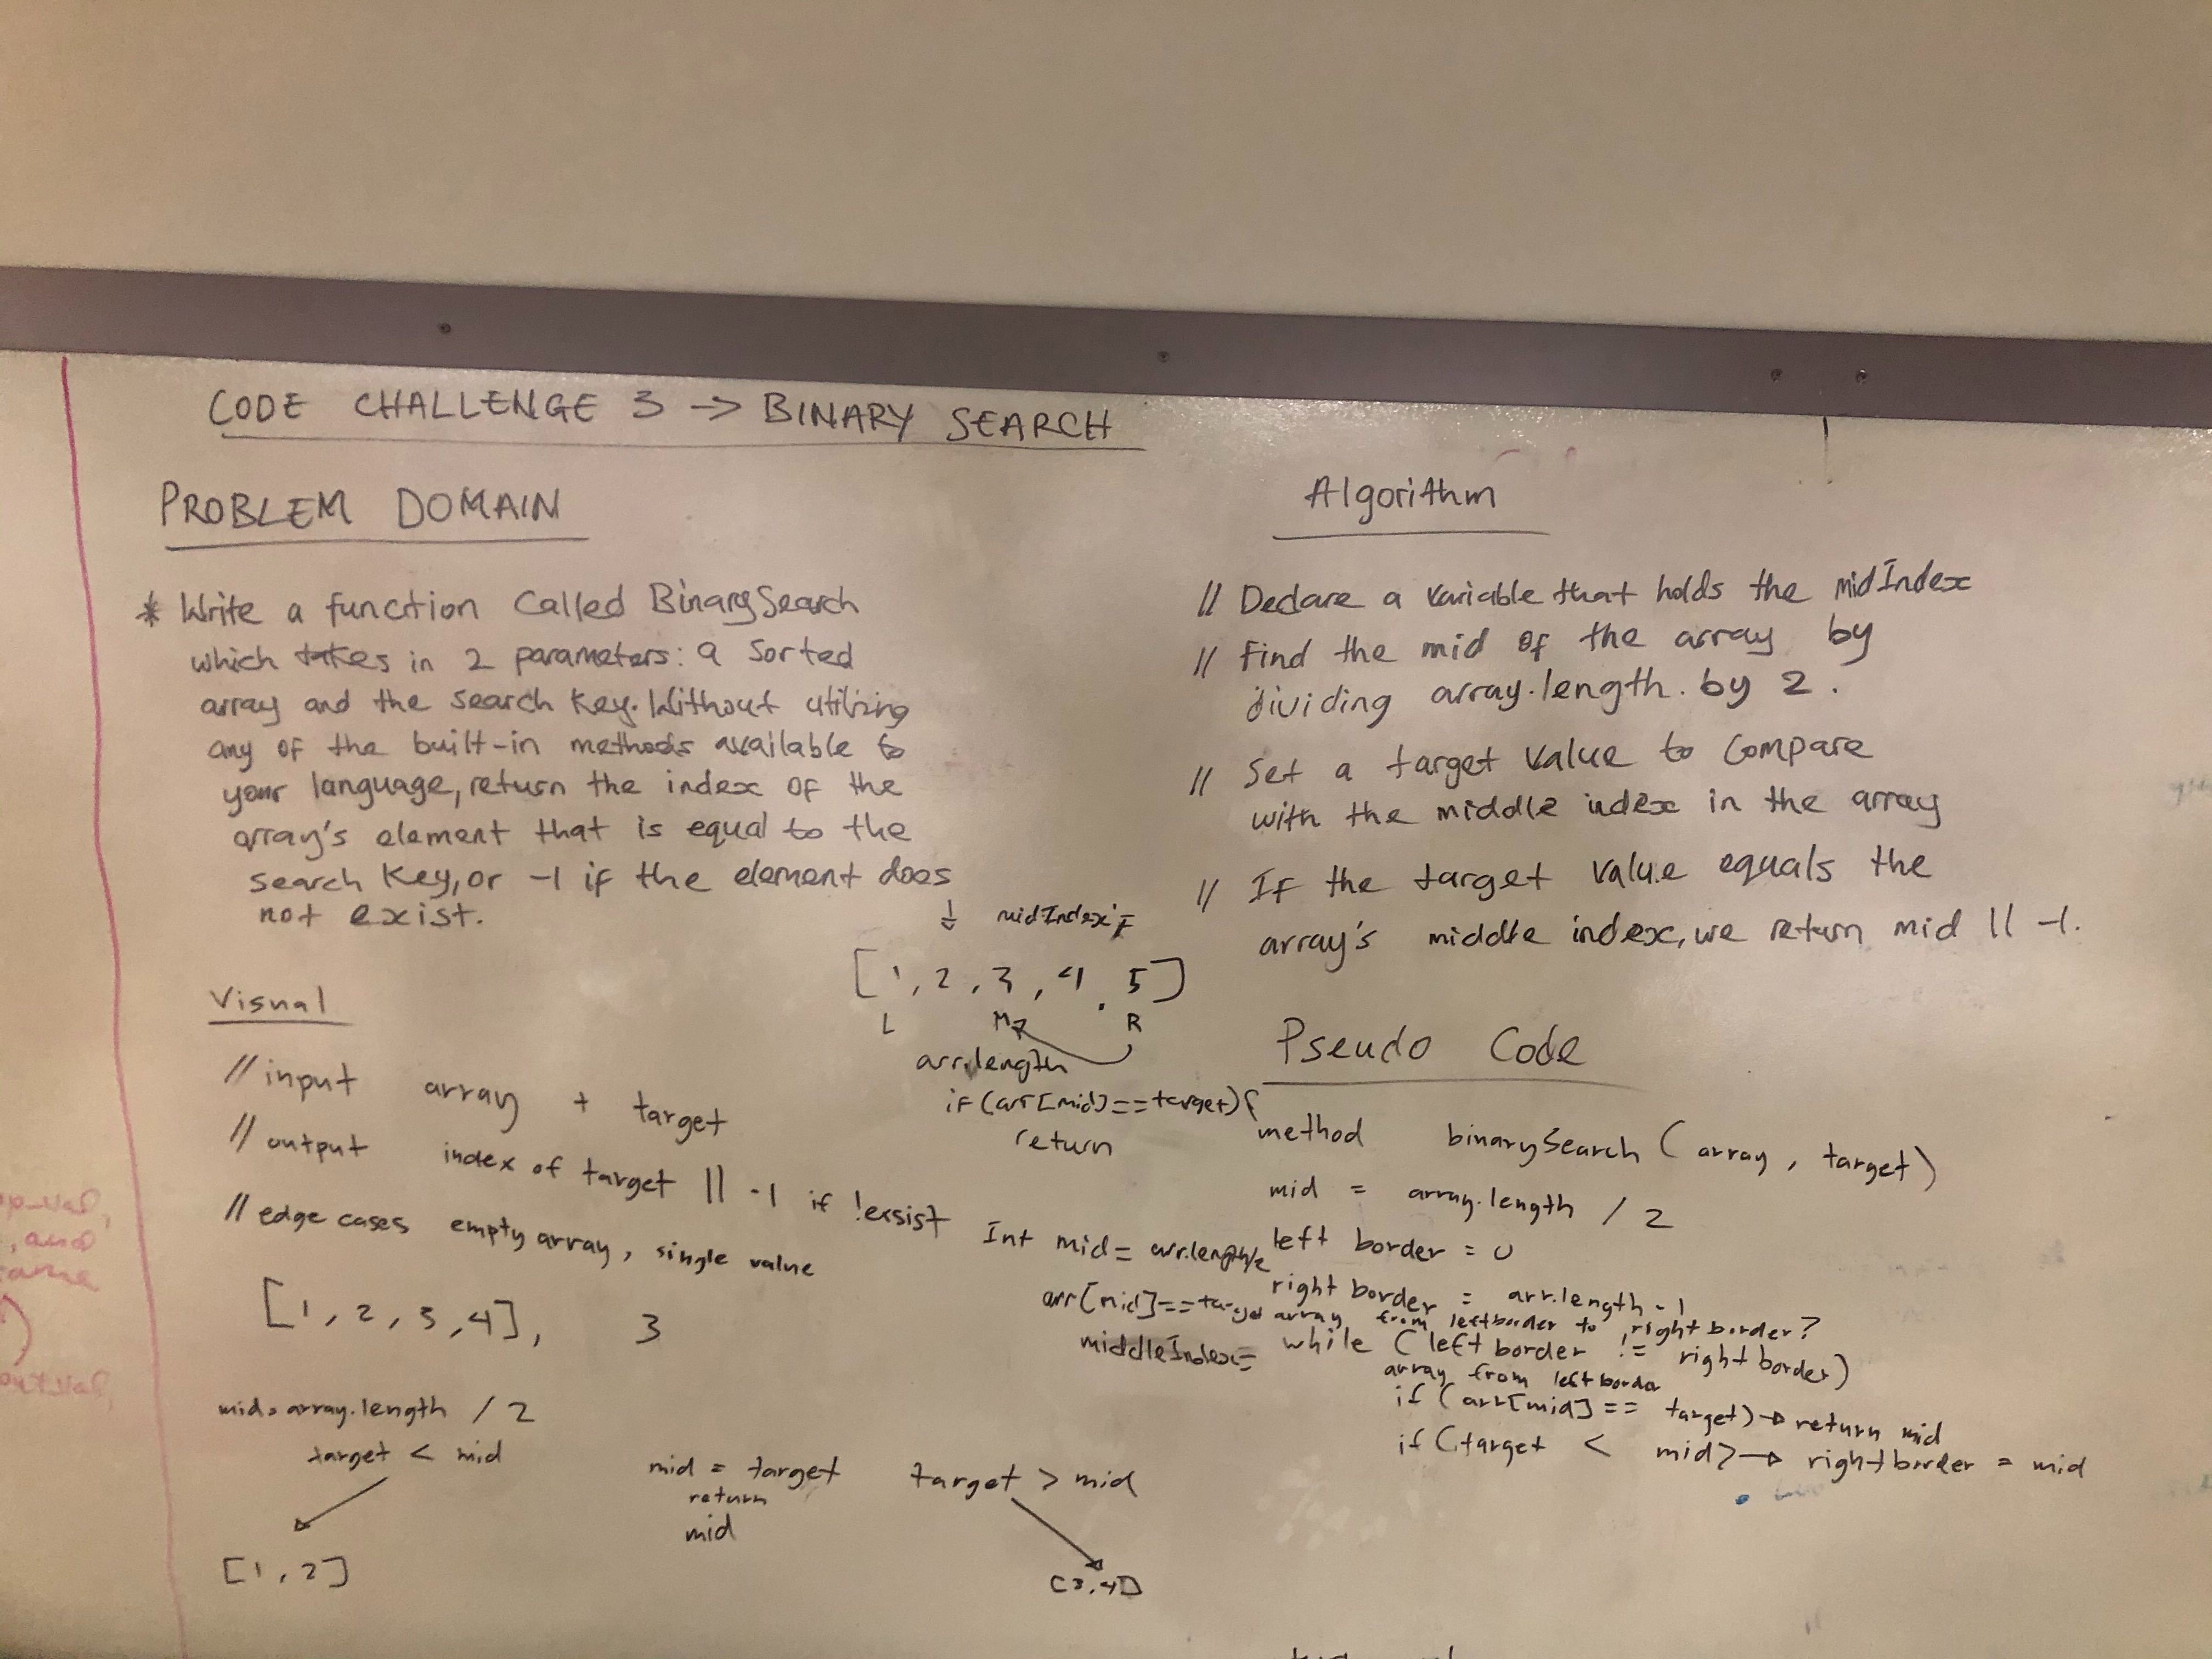 CODE CHALLENGE 3 -> BINARY SEARCH
PROBLEM DOMAIN
* Write a function called BinarySearch
which takes in 2 parameters: a sorted
array and the search key. Without utilizing
any of the built-in methods available to
your language, return the index of the
array's element that is equal to the
search key, or -1 if the element does
not exist.
Visual
// input array + target
// output index of target || -1 if !exsist
// edge cases empty array, single value
[1, 2, 3, 4], 3
mid = array.length / 2
target < mid
[1, 2]
mid = target
return
mid
target > mid
[3, 4]
midIndex =
[1, 2, 3, 4, 5]
L M R
arr.length
if (arr[mid] == target) {
return
Int mid = arr.length/2
arr[mid] == target
middleIndex =
Algorithm
// Declare a variable that holds the midIndex
// Find the mid of the array by
dividing array.length. by 2.
// Set a target value to compare
with the middle index in the array
// If the target value equals the
array's middle index, we return mid || -1.
Pseudo Code
method binarySearch (array, target)
mid = array.length / 2
left border = 0
right border = arr.length - 1
array from leftborder to right border?
while (left border != right border)
array from left border
if (arr[mid] == target) -> return mid
if (target < mid) -> right border = mid